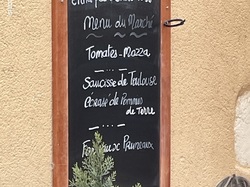 Menu du Marché
Tomates-Mozza
Saucisse de Toulouse
Écrasé de Pommes
de Terre
Pruneaux